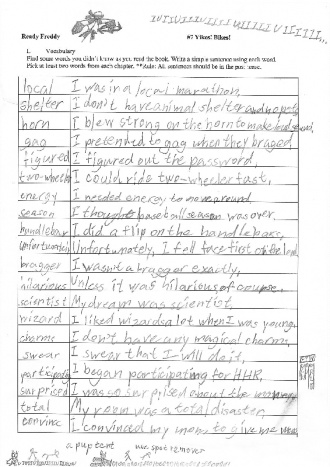 Ready Freddy #7 Yikes! Bikes!
1. Vocabulary
Find some words you didn't know as you read the book. Write a simple sentence using each word.
Pick at least two words from each chapter. **Rule: All sentences should be in the past tense.
local I was in a local marathon.
shelter I don't have animal shelter and
horn I blew strong on the horn to make loud sound.
gag I pretented to gag when they braged.
figured I figured out the password.
two-wheeler I could ride two-wheeler fast.
energy I needed energy to move around.
season I thought baseball season was over.
handlebar I did a flip on the handlebars.
unfortunately Unfortunately, I fell face first on the
bragger I wasn't a bragger exactly.
hilarious Unless it was hilarious of course.
scientist My dream was scientist.
wizard I liked wizards a lot when I was young.
charms I don't have any magical charms.
swear I swear that I will do it.
participate I began participating for HHR.
surprised I was so surprised about the
total My room was a total disaster.
convince I convinced my mom to give me
a pup tent spot remover